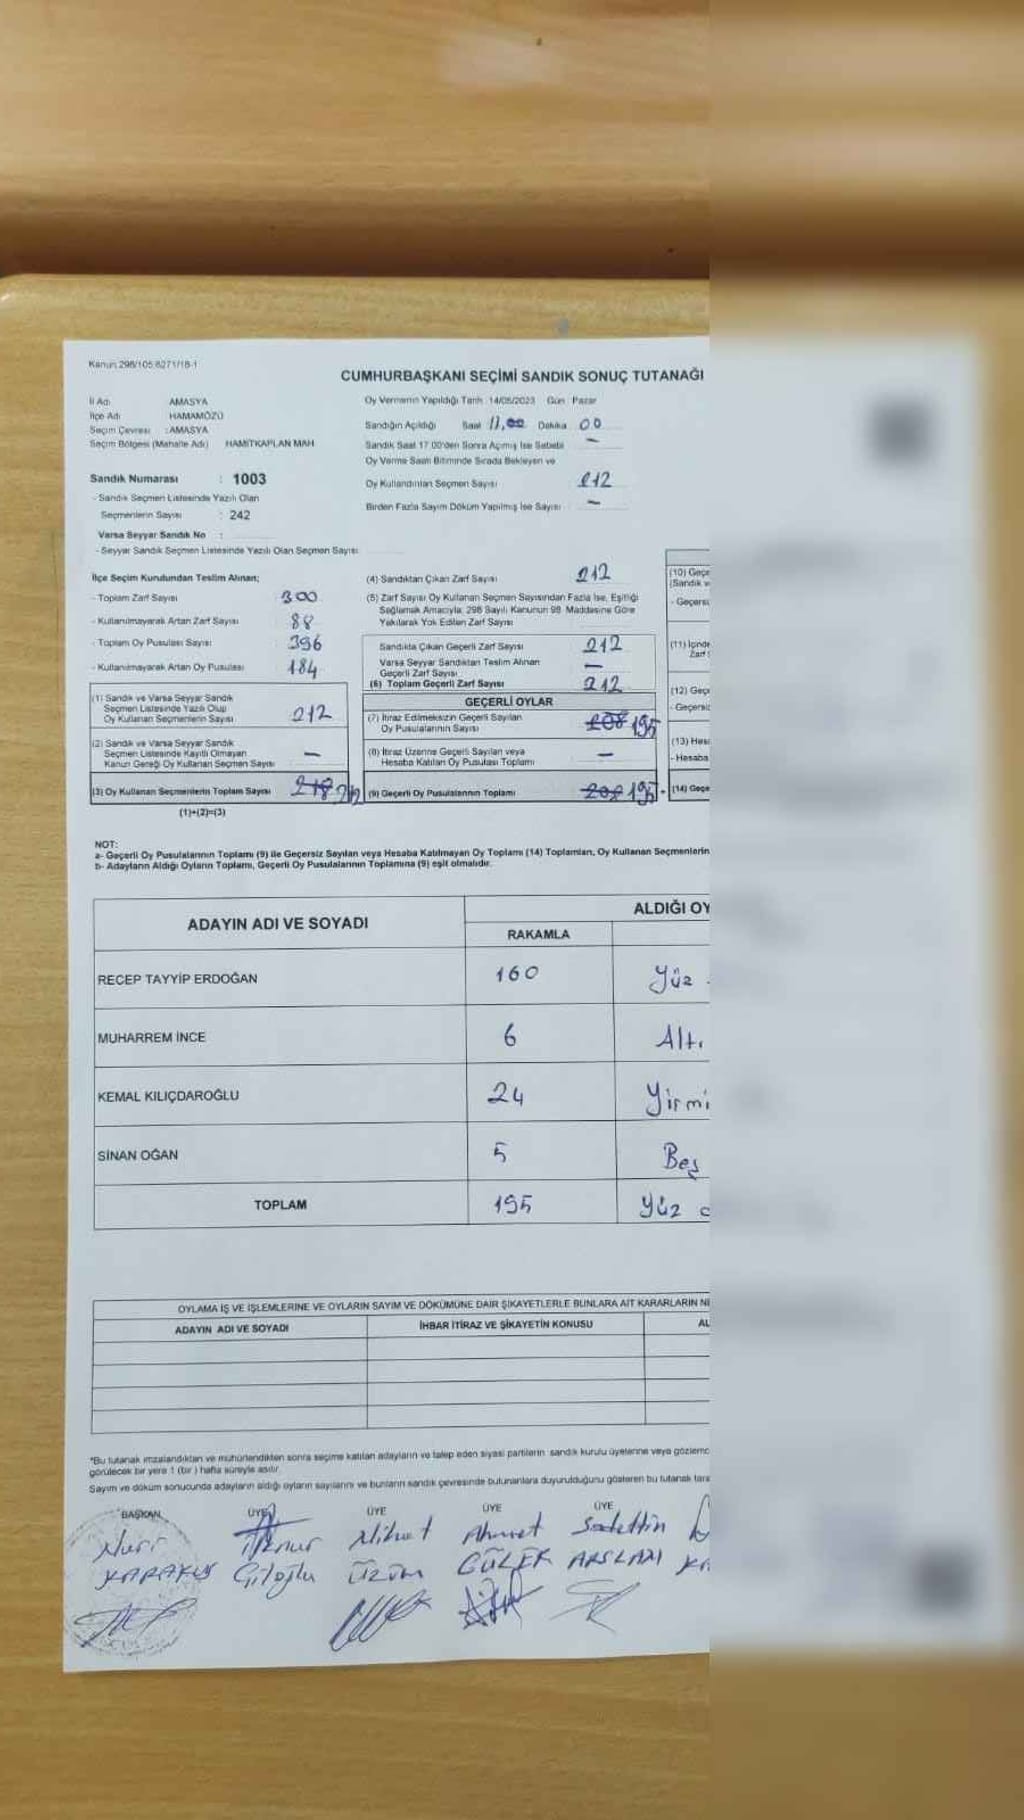 Kanun 298/105,6271/18-1
CUMHURBAŞKANI SEÇİMİ SANDIK SONUÇ TUTANAĞI
İl Adı AMASYA
İlçe Adı HAMAMÖZÜ
Seçim Çevresi : AMASYA
Seçim Bölgesi (Mahalle Adı) HAMİTKAPLAN MAH
Sandık Numarası : 1003
- Sandık Seçmen Listesinde Yazılı Olan
Seçmenlerin Sayısı : 242
Varsa Seyyar Sandık No :
- Seyyar Sandık Seçmen Listesinde Yazılı Olan Seçmen Sayısı
Oy Vermenin Yapıldığı Tarih 14/05/2023 Gün : Pazar
Sandığın Açıldığı Saat Dakika 00
Sandık Saat 17.00'den Sonra Açılmış İse Sebebi —
Oy Verme Saati Bitiminde Sırada Bekleyen ve
Oy Kullandırılan Seçmen Sayısı 212
Birden Fazla Sayım Döküm Yapılmış İse Sayısı —
İlçe Seçim Kurulundan Teslim Alınan;
- Toplam Zarf Sayısı 300
- Kullanılmayarak Artan Zarf Sayısı 88
- Toplam Oy Pusulası Sayısı 396
- Kullanılmayarak Artan Oy Pusulası 184
(1) Sandık ve Varsa Seyyar Sandık
Seçmen Listesinde Yazılı Olup
Oy Kullanan Seçmenlerin Sayısı 212
(2) Sandık ve Varsa Seyyar Sandık
Seçmen Listesinde Kayıtlı Olmayan
Kanun Gereği Oy Kullanan Seçmen Sayısı —
(3) Oy Kullanan Seçmenlerin Toplam Sayısı 212
(1)+(2)=(3)
(4) Sandıktan Çıkan Zarf Sayısı 212
(5) Zarf Sayısı Oy Kullanan Seçmen Sayısından Fazla İse, Eşitliği
Sağlamak Amacıyla; 298 Sayılı Kanunun 98. Maddesine Göre
Yakılarak Yok Edilen Zarf Sayısı
Sandıkta Çıkan Geçerli Zarf Sayısı 212
Varsa Seyyar Sandıktan Teslim Alınan
Geçerli Zarf Sayısı —
(6) Toplam Geçerli Zarf Sayısı 212
GEÇERLİ OYLAR
(7) İtiraz Edilmeksizin Geçerli Sayılan
Oy Pusulalarının Sayısı 208 195
(8) İtiraz Üzerine Geçerli Sayılan veya
Hesaba Katılan Oy Pusulası Toplamı —
(9) Geçerli Oy Pusulalarının Toplamı 208 195
(10) Geçe
(Sandık v
- Geçersi
(11) İçind
Zarf S
(12) Geçe
- Geçersiz
(13) Hesa
- Hesaba
(14) Geçe
NOT:
a- Geçerli Oy Pusulalarının Toplamı (9) ile Geçersiz Sayılan veya Hesaba Katılmayan Oy Toplamı (14) Toplamları, Oy Kullanan Seçmenlerin
b- Adayların Aldığı Oyların Toplamı, Geçerli Oy Pusulalarının Toplamına (9) eşit olmalıdır.
ADAYIN ADI VE SOYADI ALDIĞI OY
RAKAMLA
RECEP TAYYİP ERDOĞAN 160 Yüz
MUHARREM İNCE 6 Altı
KEMAL KILIÇDAROĞLU 24 Yirmi
SİNAN OĞAN 5 Beş
TOPLAM 195 Yüz
OYLAMA İŞ VE İŞLEMLERİNE VE OYLARIN SAYIM VE DÖKÜMÜNE DAİR ŞİKAYETLERLE BUNLARA AİT KARARLARIN NE
ADAYIN ADI VE SOYADI İHBAR İTİRAZ VE ŞİKAYETİN KONUSU AL
*Bu tutanak imzalandıktan ve mühürlendikten sonra seçime katılan adayların ve talep eden siyasi partilerin sandık kurulu üyelerine veya gözlemc
görülecek bir yere 1 (bir) hafta süreyle asılır.
Sayım ve döküm sonucunda adayların aldığı oyların sayılarını ve bunların sandık çevresinde bulunanlara duyurulduğunu gösteren bu tutanak tara
BAŞKAN ÜYE ÜYE ÜYE ÜYE
Nuri İlknur Nihat Ahmet Sadettin
KARAKUŞ Çiloğlu ÜZÜM GÜLER ARSLAN